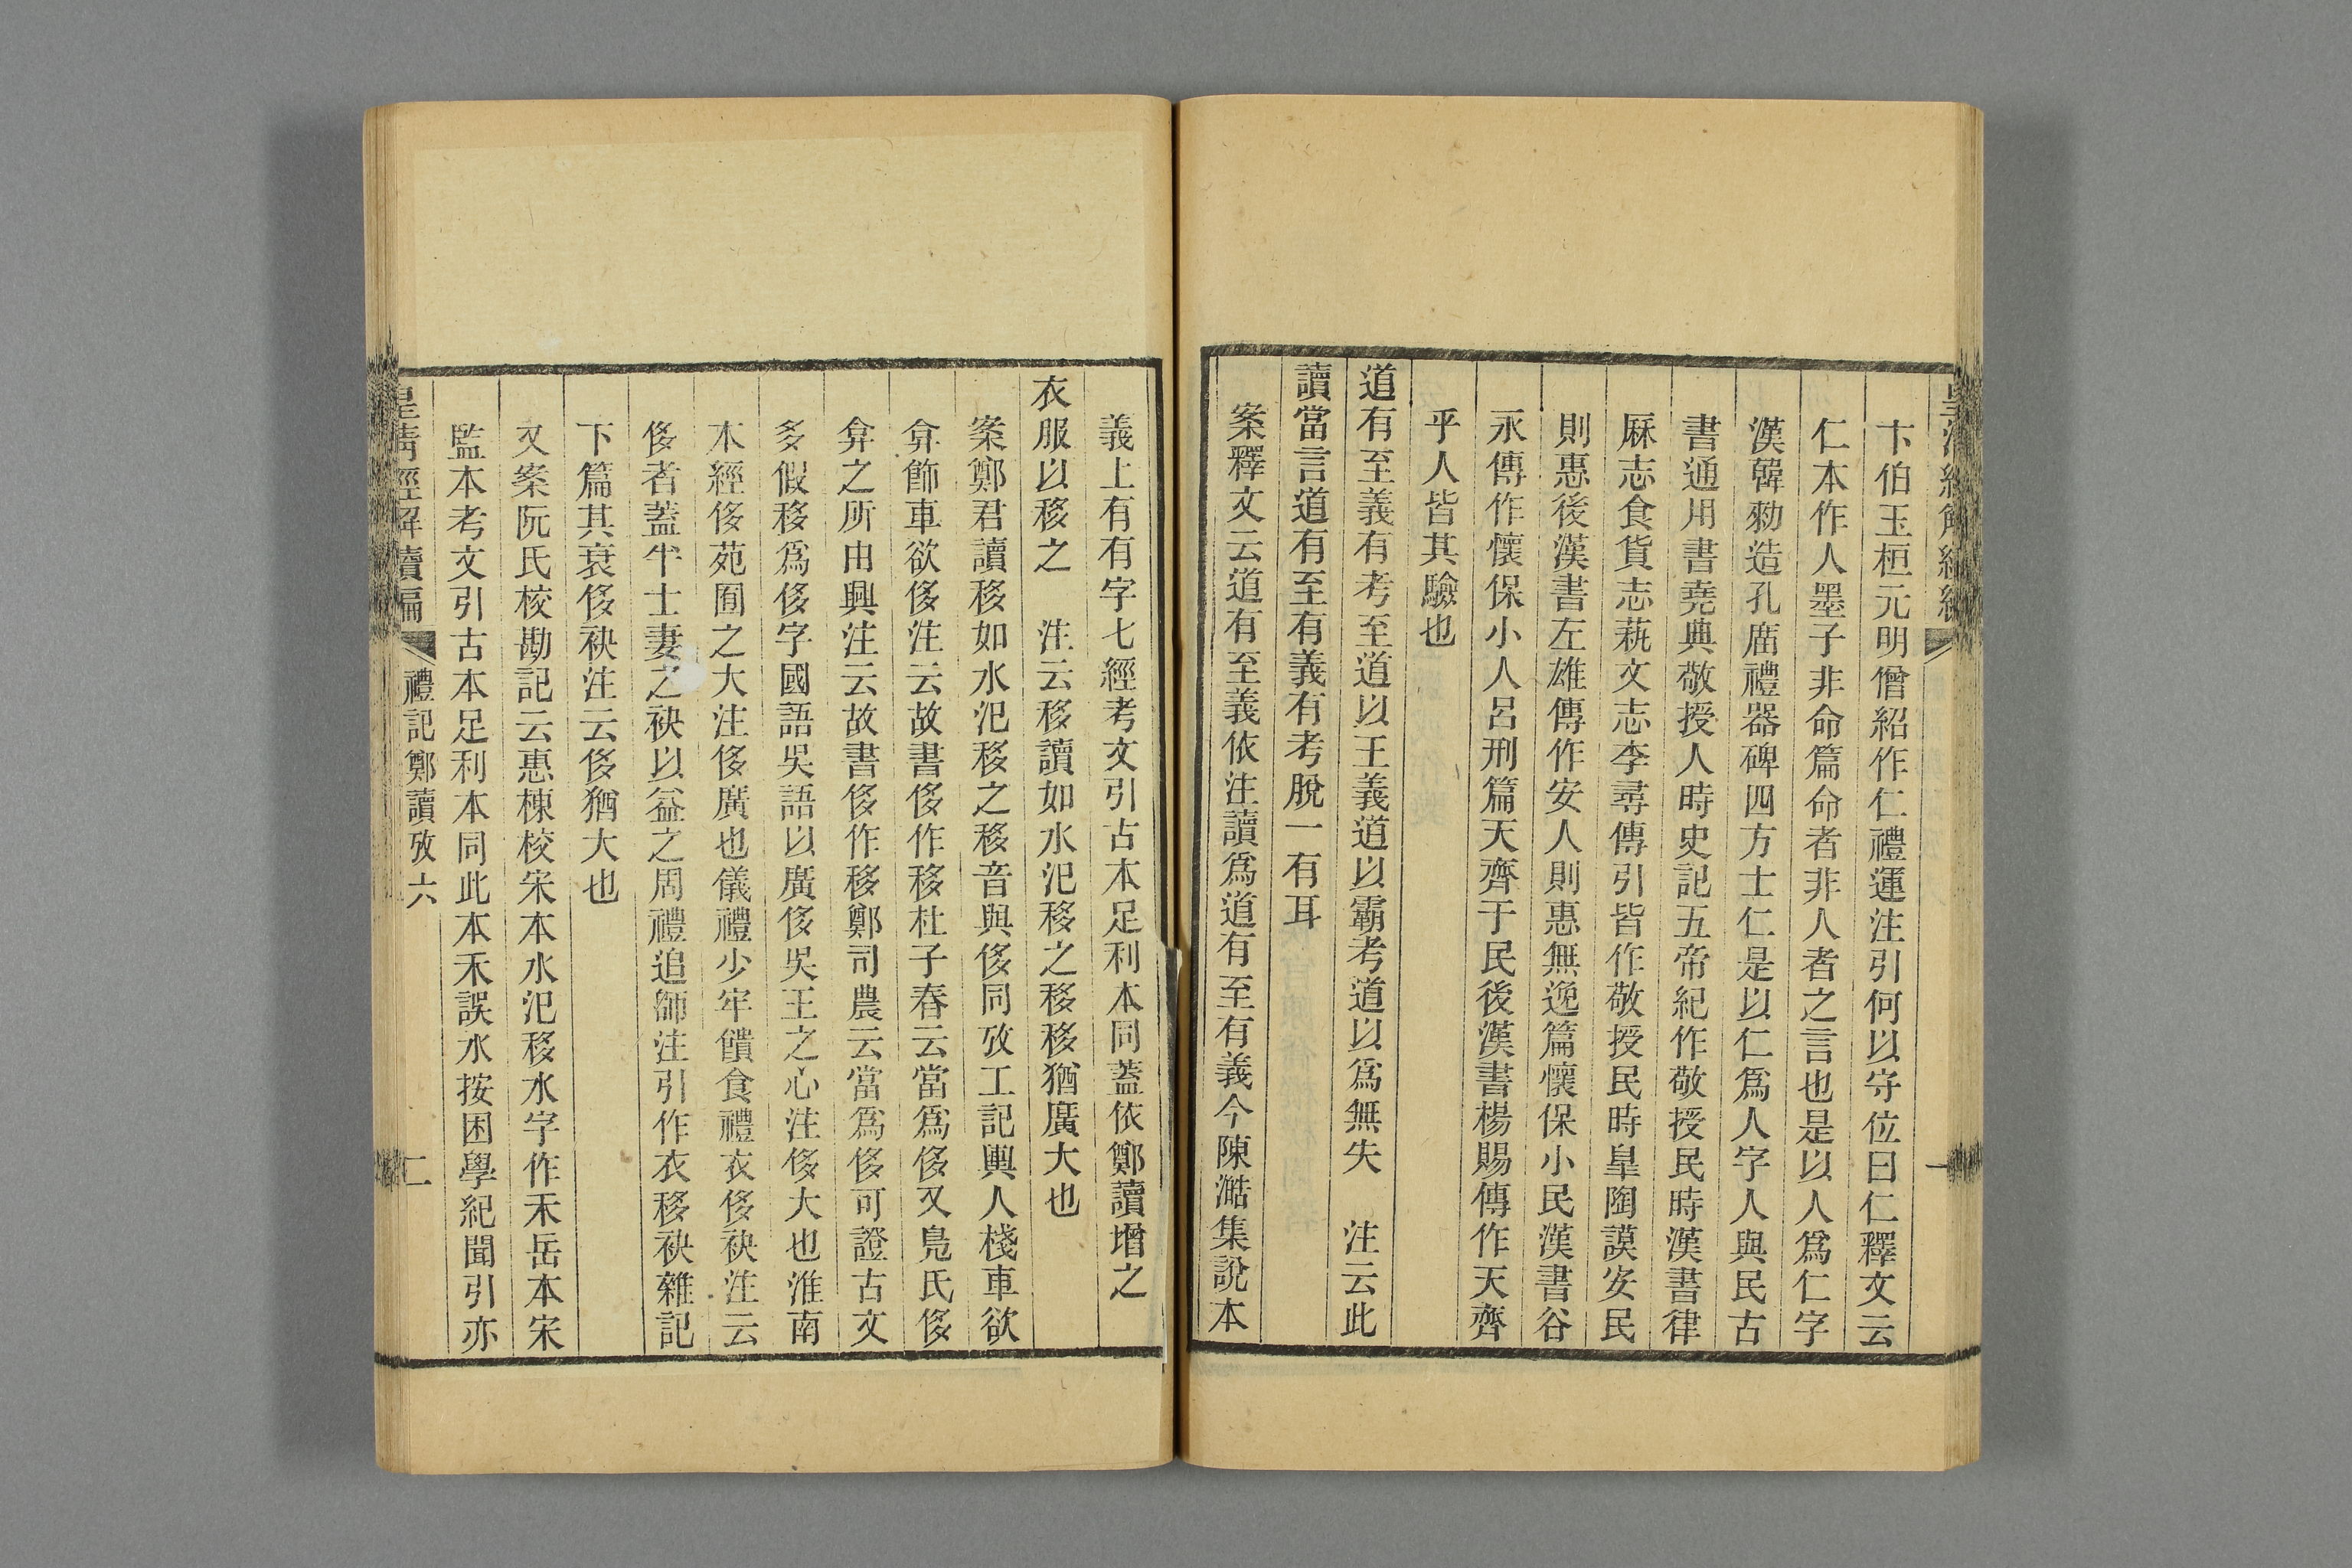 卞伯玉桓元明僧紹作仁禮運注引何以守位曰仁釋文云
仁本作人墨子非命篇命者非人者之言也是以人爲仁字
漢韓勑造孔庿禮器碑四方士仁是以仁爲人字人與民古
書通用書堯典敬授人時史記五帝紀作敬授民時漢書律
厤志食貨志蓺文志李尋傳引皆作敬授民時臯陶謨安民
則惠後漢書左雄傳作安人則惠無逸篇懷保小民漢書谷
永傳作懷保小人呂刑篇天齊于民後漢書楊賜傳作天齊
乎人皆其驗也
道有至義有考至道以王義道以霸考道以爲無失　注云此
讀當言道有至有義有考脫一有耳
案釋文云道有至義依注讀爲道有至有義今陳澔集說本
義上有有字七經考文引古本足利本同蓋依鄭讀增之
衣服以移之　注云移讀如水汜移之移移猶廣大也
案鄭君讀移如水汜移之移音與侈同攷工記輿人棧車欲
弇飾車欲侈注云故書侈作移杜子春云當爲侈又鳧氏侈
弇之所由興注云故書侈作移鄭司農云當爲侈可證古文
多假移爲侈字國語吳語以廣侈吳王之心注侈大也淮南
本經侈苑囿之大注侈廣也儀禮少牢饋食禮衣侈袂注云
侈者蓋半士妻之袂以益之周禮追師注引作衣移袂雜記
下篇其衰侈袂注云侈猶大也
又案阮氏校勘記云惠棟校宋本水汜移水字作禾岳本宋
監本考文引古本足利本同此本禾誤水按困學紀聞引亦
皇清經解續編　禮記鄭讀攷六　二